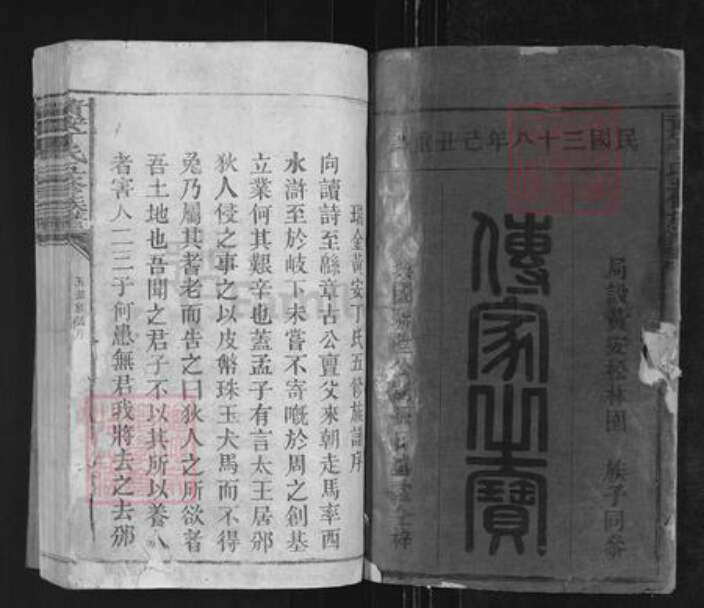 民國三十八年己丑重
局設黃安松林園　族子同參
傳家之寶
瑞金黃安丁氏五修族譜序
向讀詩至緜章古公亶父來朝走馬率西
水滸至於岐下未嘗不寄嘅於周之創基
立業何其艱辛也蓋孟子有言太王居邠
狄人侵之事之以皮幣珠玉犬馬而不得
免乃屬其耆老而告之曰狄人之所欲者
吾土地也吾聞之君子不以其所以養人
者害人二三子何患無君我將去之去邠